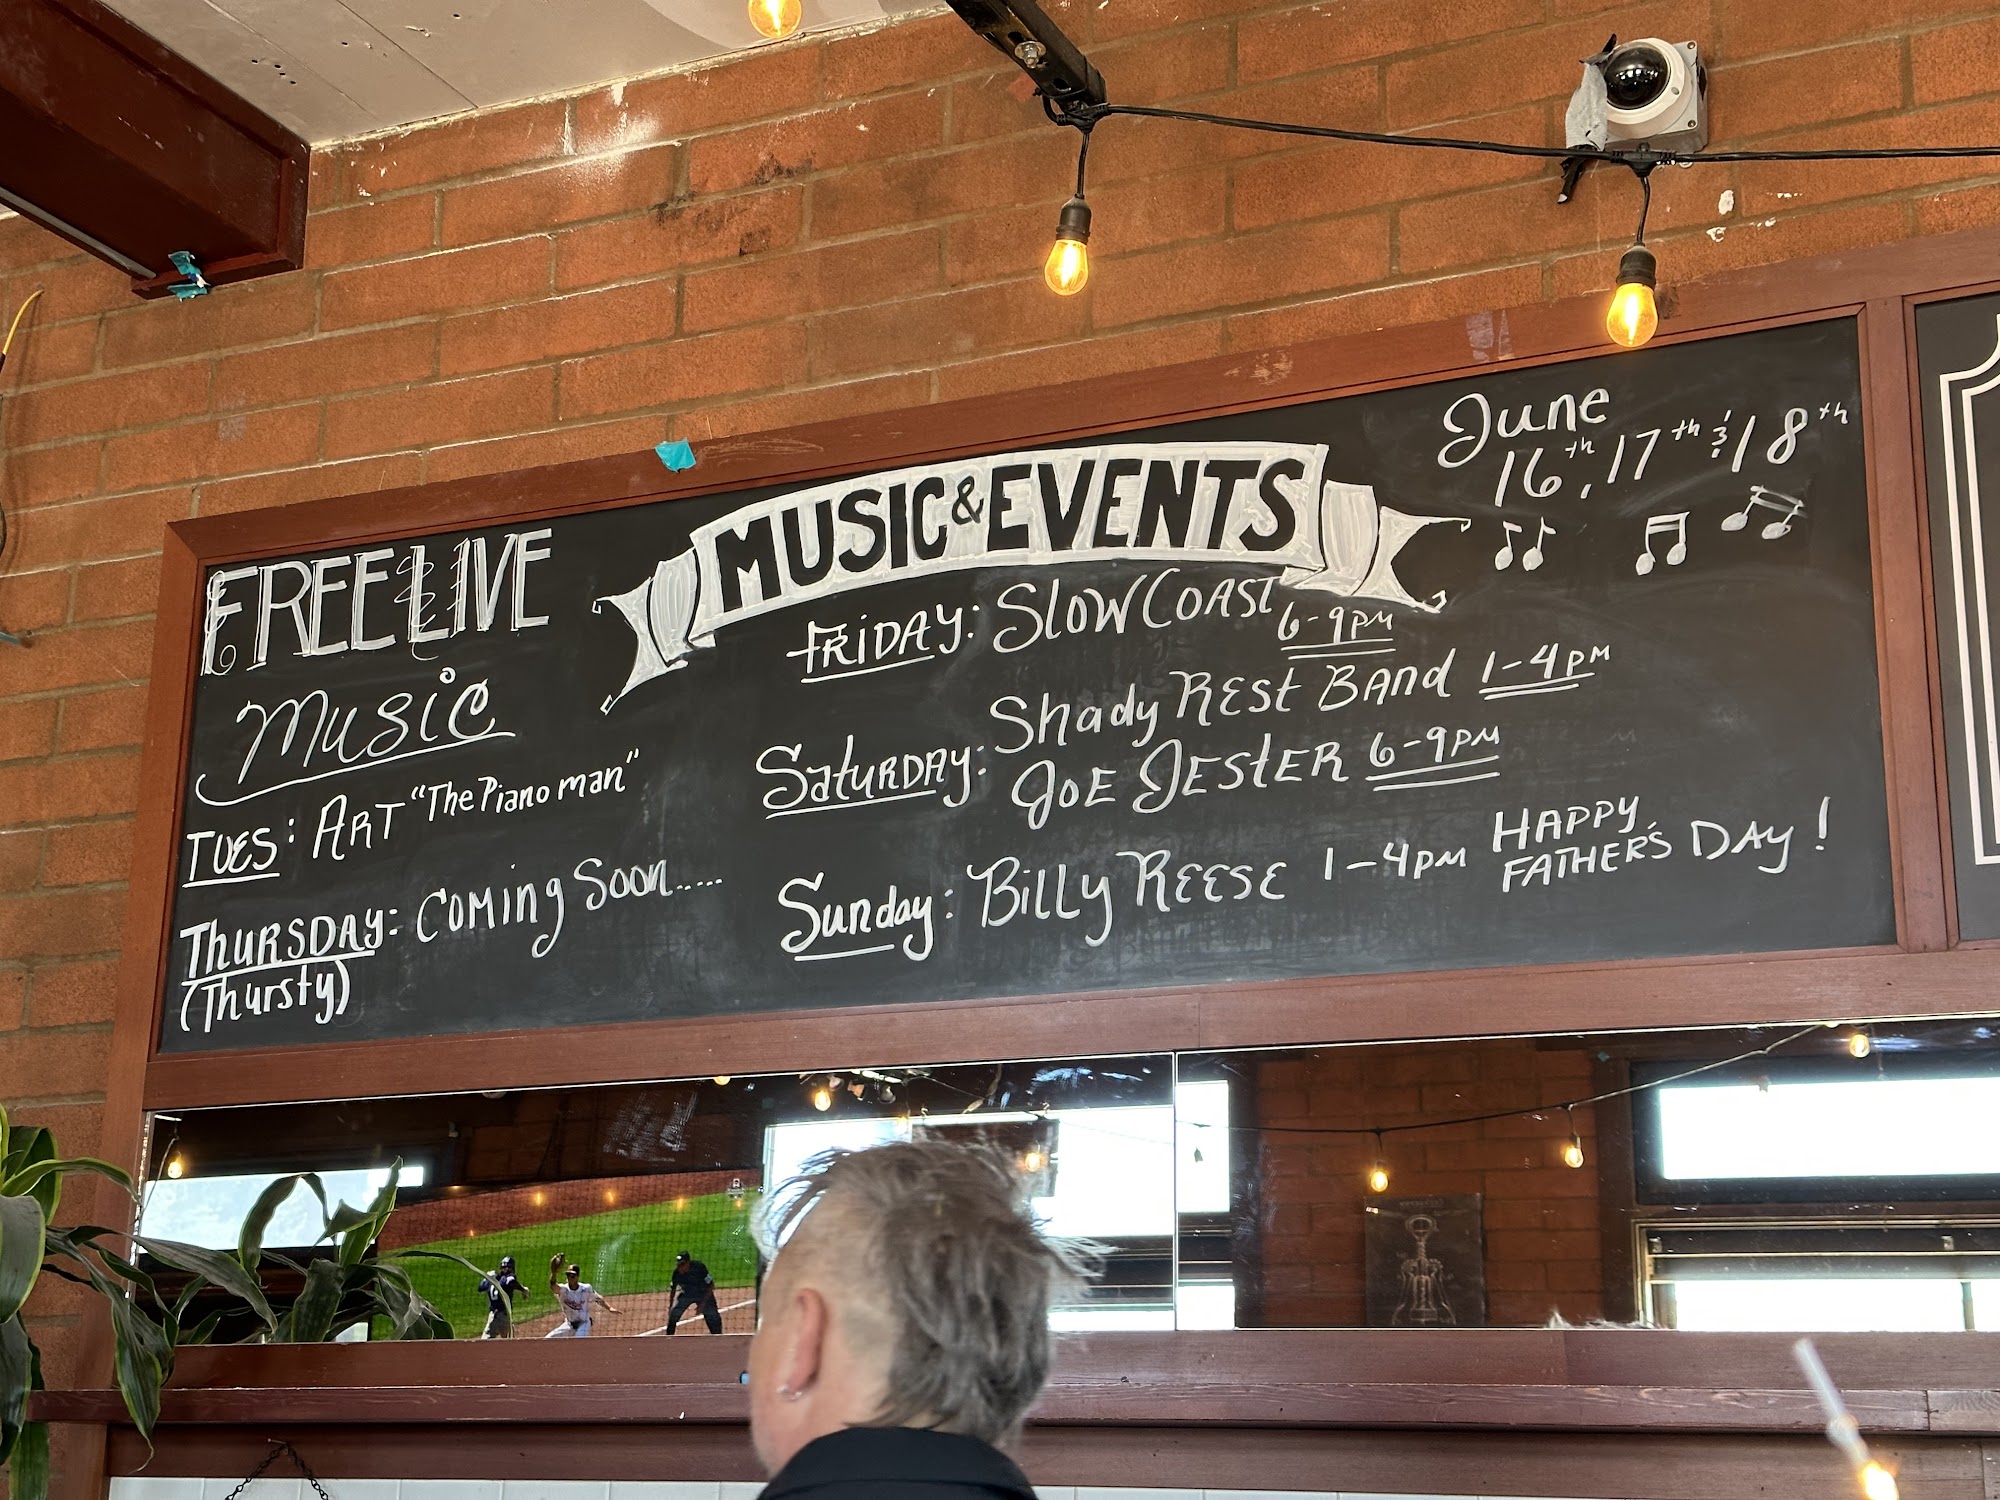 FREE LIVE
MUSIC
TUES: ART "The Piano man"
THURSDAY: COMING Soon.....
(Thursty)
MUSIC & EVENTS
June
16th, 17th & 18th
FRIDAY: SLOWCOAST 6-9PM
SATURDAY: Shady REST BAND 1-4PM
JOE JESTER 6-9PM
Sunday: Billy REESE 1-4PM HAPPY FATHER'S DAY!